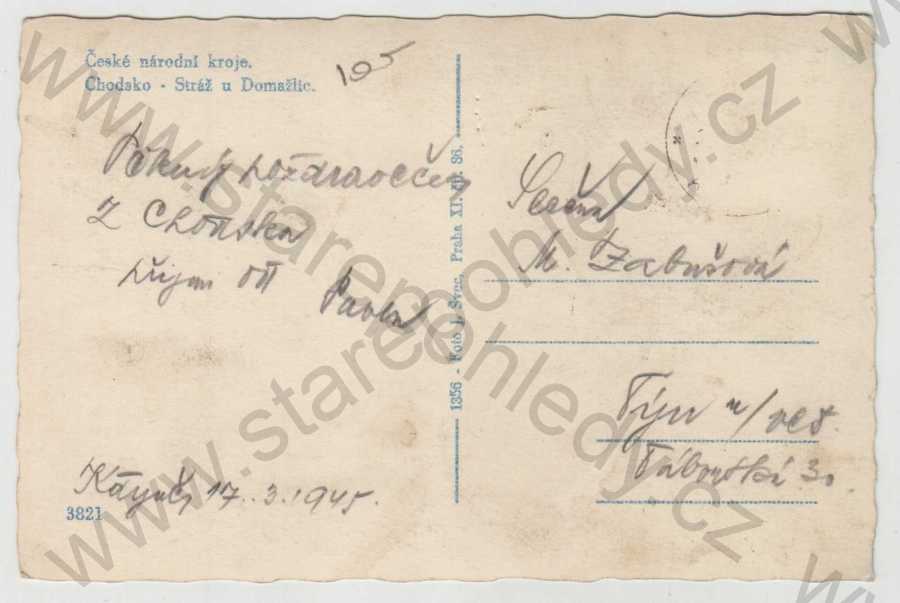 České národní kroje.
Chodsko - Stráž u Domažlic.
105
Pěkný pozdraveček
z Chodska
přijm od Pavla
17.3.1945.
3821
1356 - Foto J. Švec, Praha XI. čp. 86.
Slečna
M. Zabušová
Týn n/Vlt.
Táborská 30
www.starepohledy.cz
www.starepohledy.cz